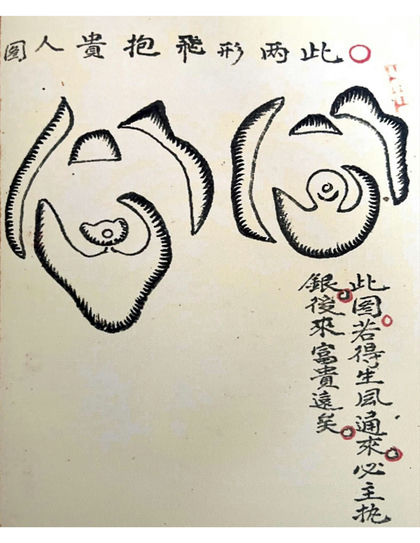 此两形飛抱貴人圖
此图若得生風通來必主执
銀後來富貴遠矣